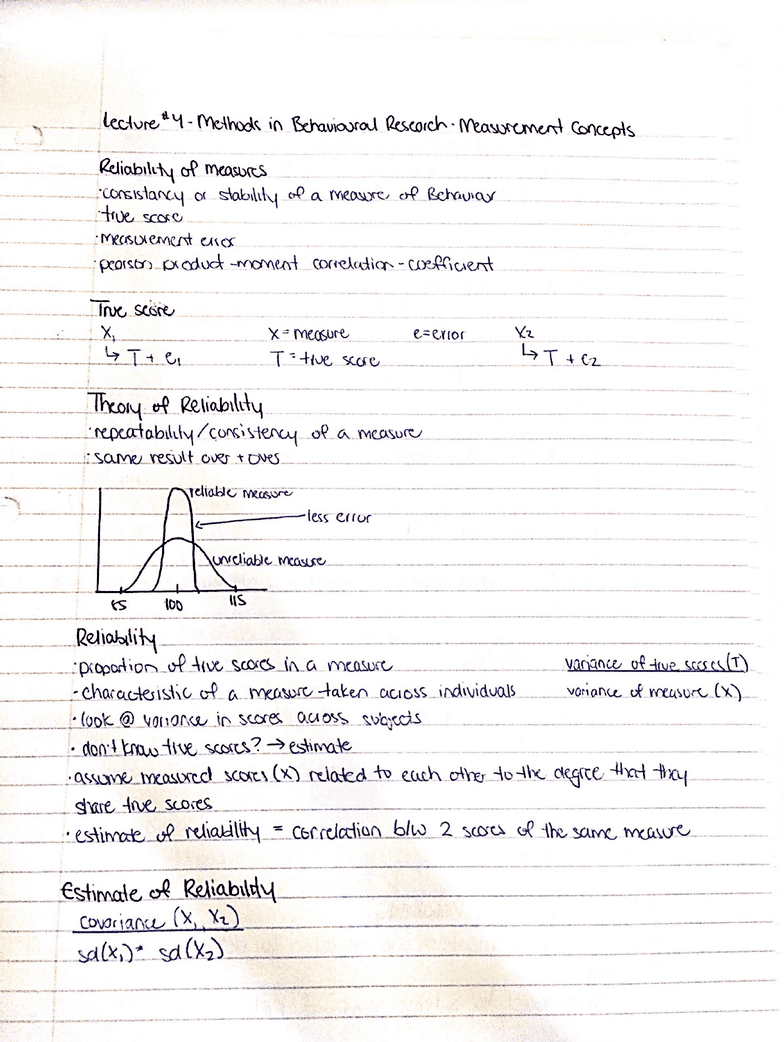 Lecture #4 - Methods in Behavioural Research - Measurement Concepts
Reliability of measures
· consistancy or stability of a measure of Behavior
· true score
· measurement error
· pearson product-moment correlation-coefficient
True score
X₁ X = measure e=error X₂
↳ T + e₁ T = true score ↳ T + e₂
Theory of Reliability
· repeatability/consistency of a measure
· same result over + over
reliable measure
less error
unreliable measure
85 100 115
Reliability
· proportion of true scores in a measure variance of true scores (T)
- characteristic of a measure taken across individuals variance of measure (X)
· look @ variance in scores across subjects
· don't know true scores? → estimate
· assume measured scores (X) related to each other to the degree that they
share true scores
· estimate of reliability = correlation b/w 2 scores of the same measure
Estimate of Reliability
covariance (X₁, X₂)
sd(X₁)* sd(X₂)